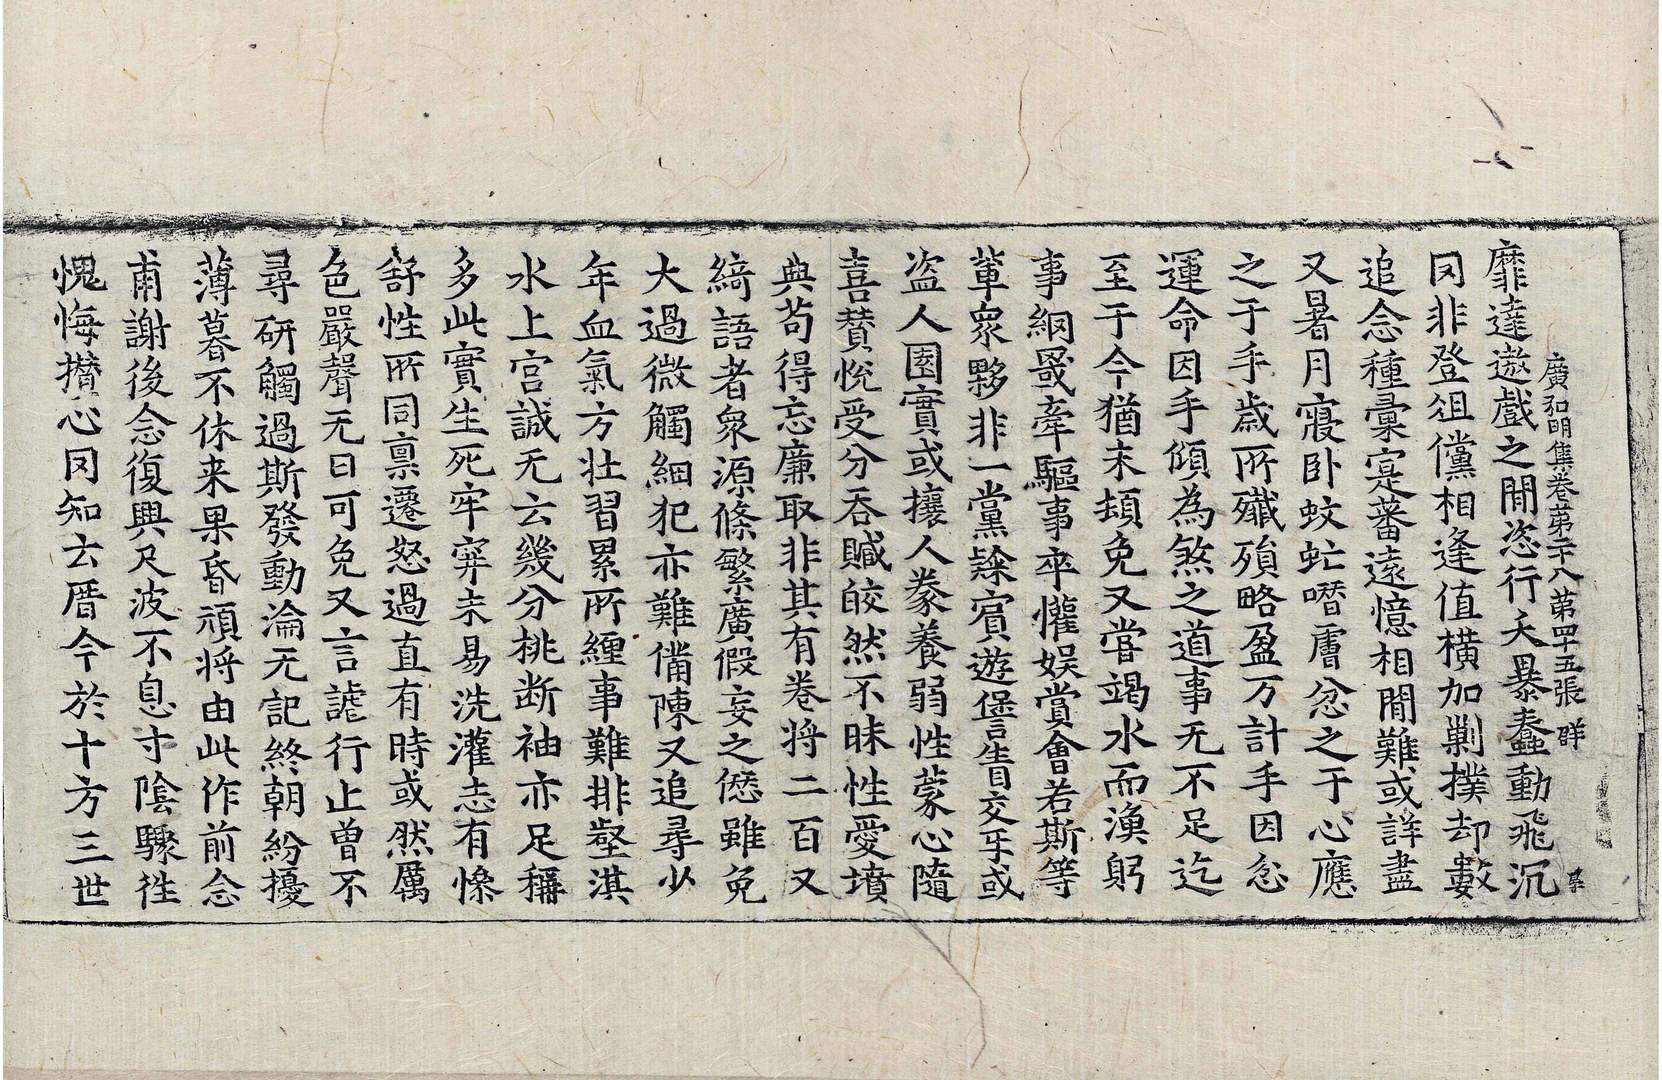 廣弘明集卷第二十八第四十五張 群
靡達遨戲之間恣行夭暴蠢動飛沉
罔非登俎儻相逢值橫加剿撲却數
追念種彙寔蕃遠憶相間難或詳盡
又暑月寢卧蚊虻噆膚忿之于心應
之于手歲所殲殞略盈万計手因忿
運命因手傾為煞之道事无不足迄
至于今猶未頓免又嘗竭水而漁躬
事網罟牽驅事卒懽娛賞會若斯等
輩衆夥非一黨隸賓遊愆眚交互或
盜人園實或攘人豢養弱性蒙心隨
喜贊悅受分吞贓皎然不昧性愛墳
典苟得忘廉取非其有卷将二百又
綺語者衆源條繁廣假妄之愆雖免
大過微觸細犯亦難備陳又追尋少
年血氣方壯習累所纏事難排壑淇
水上宮誠无云幾分桃断袖亦足稱
多此實生死牢穽未易洗灌志有慘
舒性所同禀遷怒過直有時或然厲
色嚴聲无日可免又言謔行止曾不
尋研觸過斯發動淪无記終朝紛擾
薄暮不休来果昏頑将由此作前念
甫謝後念復興尺波不息寸陰驟徃
愧悔攢心罔知云厝今於十方三世